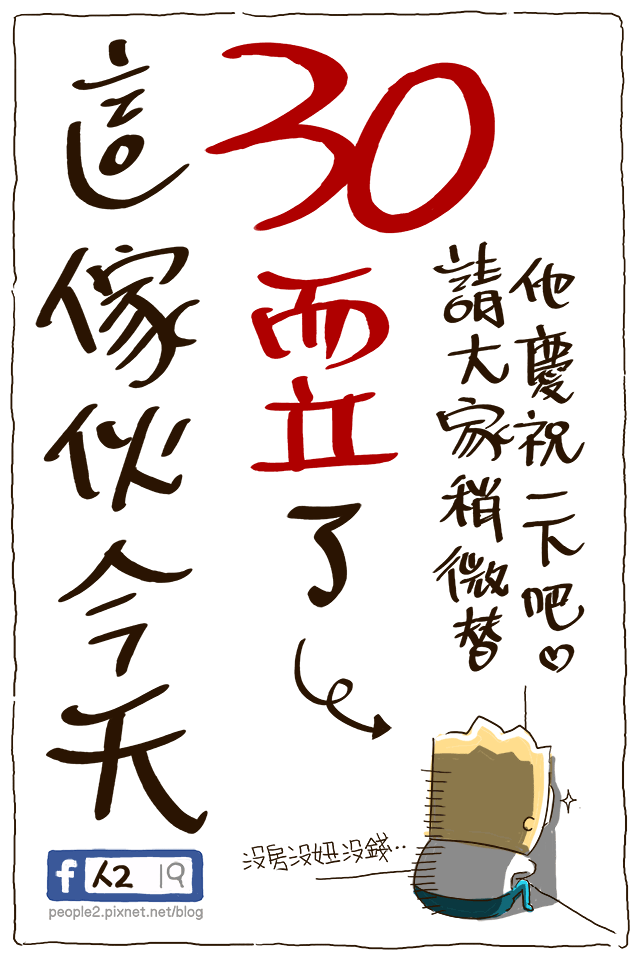 這傢伙今天
30而立了
請大家稍微替
他慶祝一下吧♡
沒房沒妞沒錢..
f 人2 19
people2.pixnet.net/blog